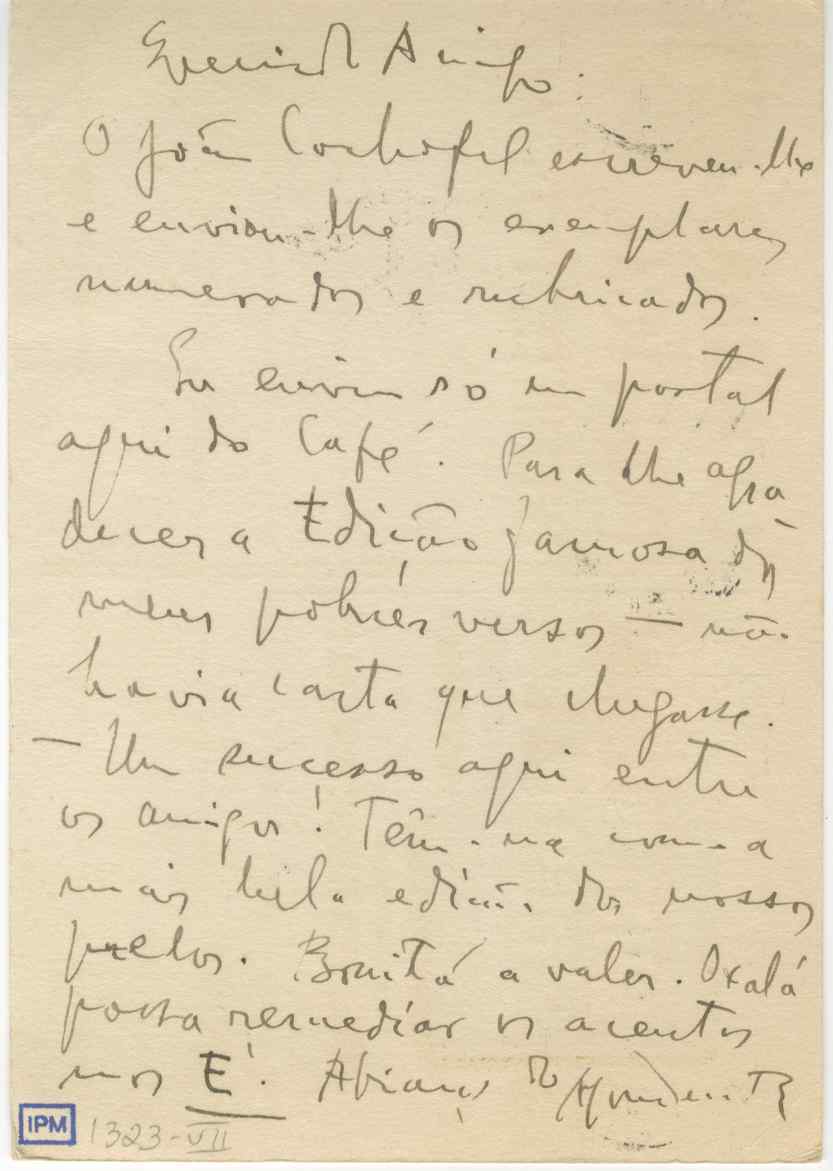 Querido Amigo:
O João Cochofel escreveu-lhe
e enviou-lhe os exemplares
numerados e rubricados.
Eu envio só um postal
aqui do Café. Para lhe agra
decer a Edição famosa dos
meus pobres versos — não
havia carta que chegasse.
— Um sucesso aqui entre
os amigos! Têm-na como a
mais bela edição dos nossos
prelos. Bonita a valer. Oxalá
possa remediar os acentos
nos É. Abraços do
IPM 1323-VII